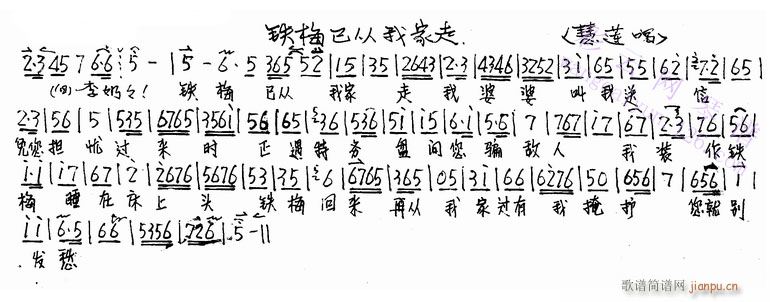 铁梅已从我家走 (慧莲唱)
2·3 45 7 6·6 5 - | 5 - 6· 5 365 52 | 15 | 35 | 2643 | 2·3 | 4346 | 3252 | 3i | 65 | 55 | 62 | 7·2 | 65 |
(白)李奶奶! 铁梅 已从 我家 走 我婆婆 叫我送 信
2·3 | 56 | 5 | 535 | 6765 | 356i | 56 | 65 | 36 | 536 | 5i | i5 | 6·i | 5·5 | 7 | 767 | i7 | 67 | 2·3 | 76 | 56 |
免您担忧过来时 正遇特务盘问您骗敌人 我装作铁
i·i | i7 | 67 | 2 | 2676 | 5676 | 53 | 35 | 6 | 6765 | 365 | 05 | 3i | 66 | 6276 | 50 | 656 | 7 | 656 | i i
梅睡在床上头 铁梅回来再从我家过有我掩护 您就别
i i | 6·5 | 66 | 5356 | 726 | 5 - ||
发愁
歌谱简谱网
jianpu.cn